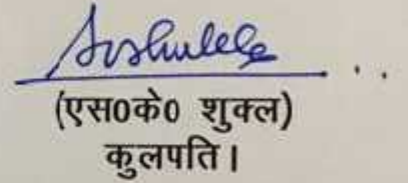 (एस0के0 शुक्ल)
कुलपति।